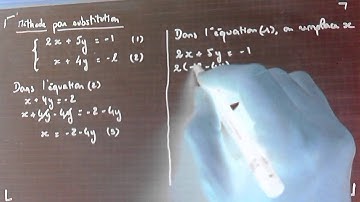 Méthode par substitution
2x + 5y = -1 (1)
x + 4y = -2 (2)
Dans l'équation (2)
x + 4y = -2
x + 4y - 4y = -2 - 4y
x = -2 - 4y (3)
Dans l'équation (1), on remplace x
2x + 5y = -1
2(-2-4y)